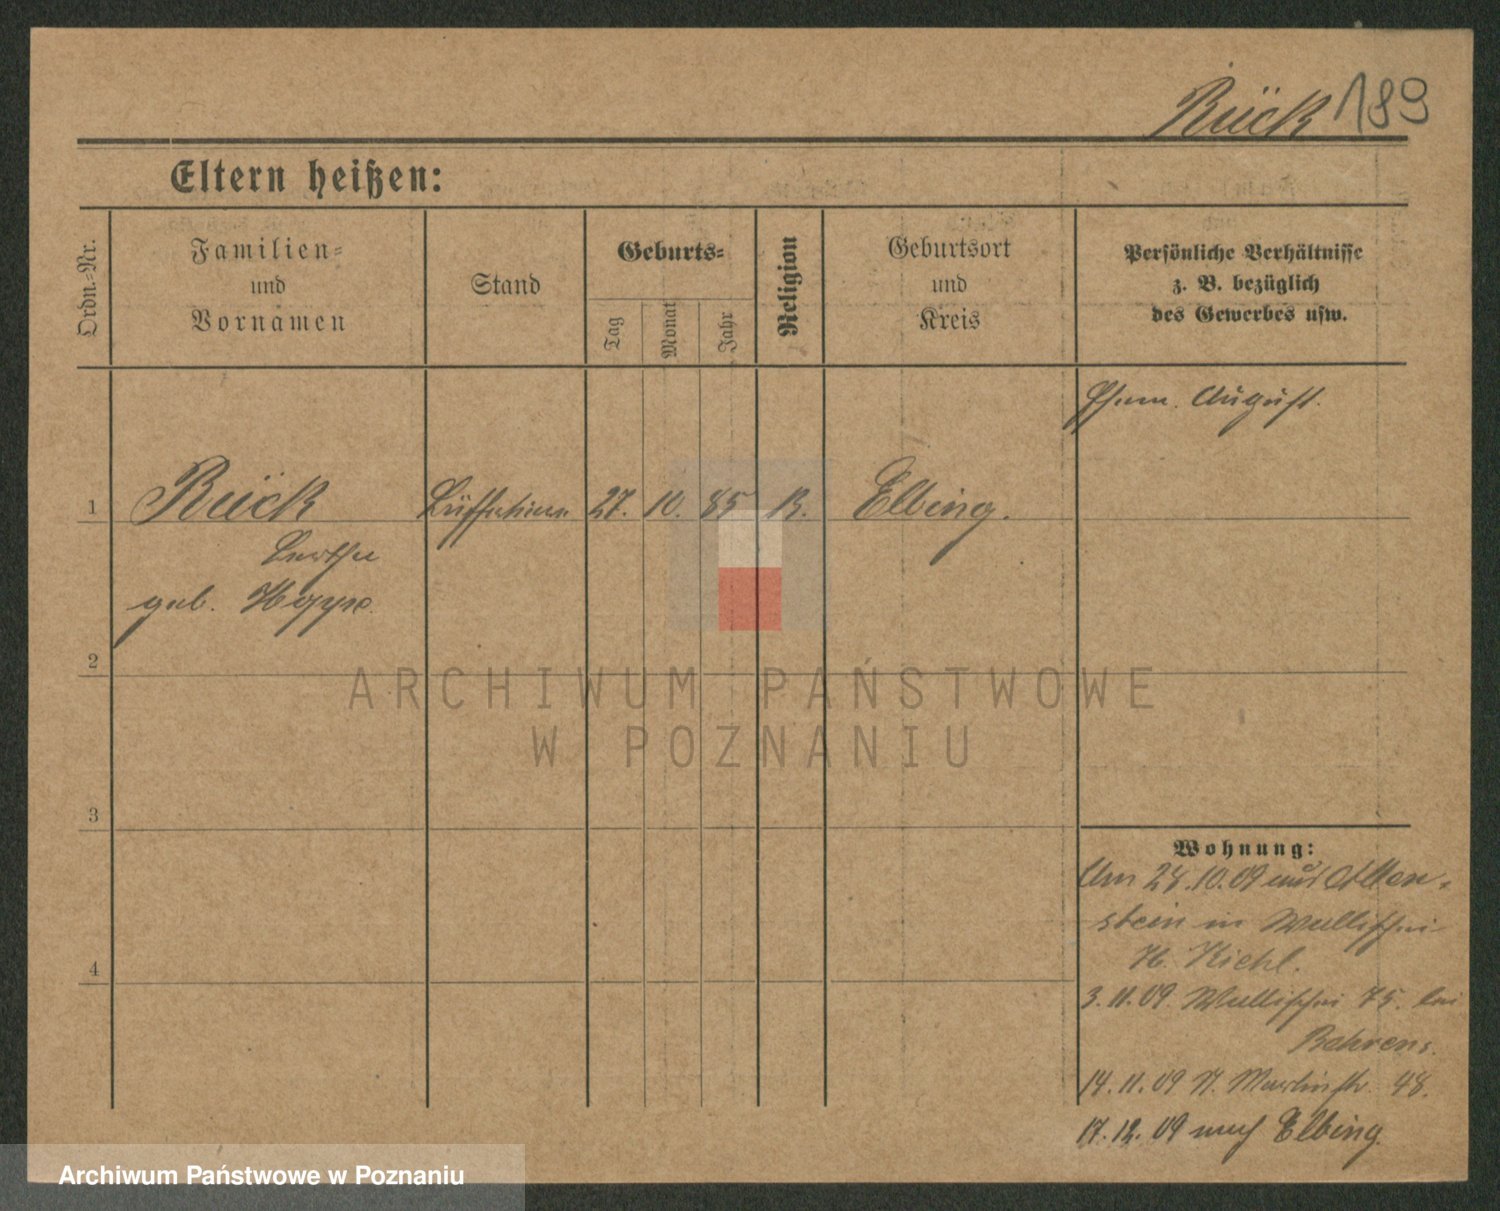 Rück 189
Eltern heißen:
Ordn.-Nr.
Familien-
und
Vornamen
Stand
Geburts-
Tag
Monat
Jahr
Religion
Geburtsort
und
Kreis
Persönliche Verhältnisse
z. B. bezüglich
des Gewerbes usw.
August.
1 Rück 27. 10. 85 Elbing.
Bertha
geb. Hoppe
2
3
4
ARCHIWUM PAŃSTWOWE
W POZNANIU
Wohnung:
Am 28.10.09 aus Allen-
stein in Wallischei
H. Kiehl.
3.11.09. Wallischei 75. bei
Behrens.
14.11.09 St. Martinstr. 48.
17.12.09 nach Elbing.
Archiwum Państwowe w Poznaniu